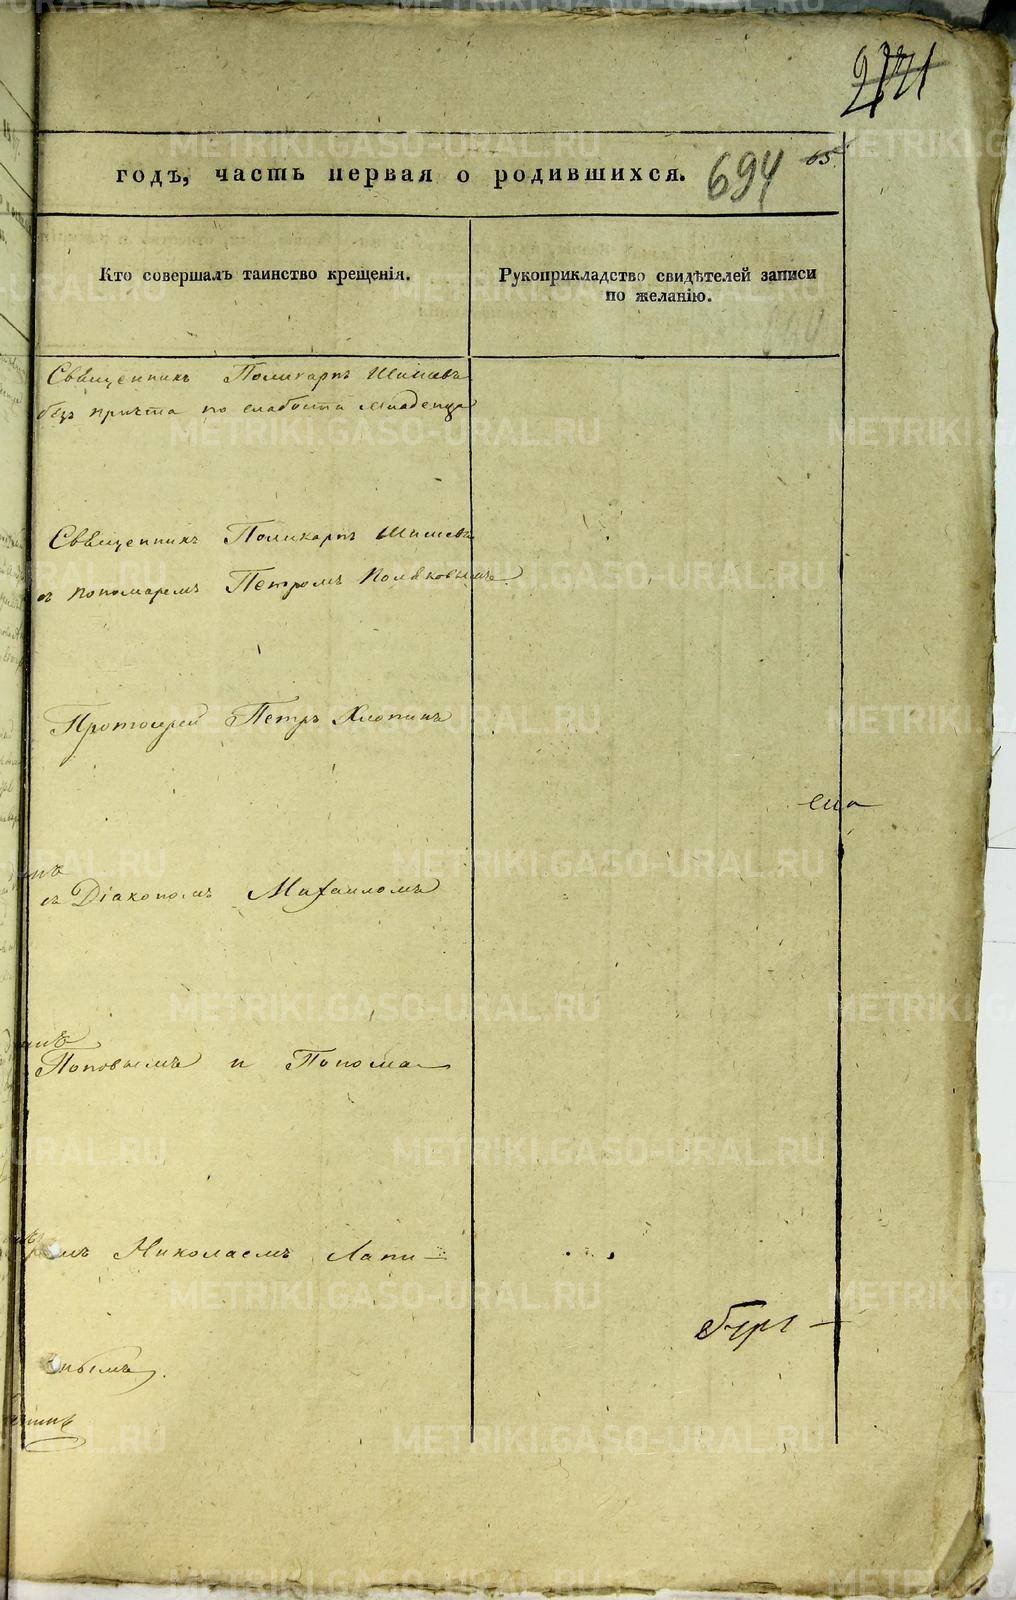 694
65
годъ, часть первая о родившихся.
Кто совершалъ таинство крещенія.
Рукоприкладство свидѣтелей записи
по желанію.
Священникъ Поликарпъ Шишевъ
безъ причта по слабости младенца
Священникъ Поликарпъ Шишевъ
съ пономаремъ Петромъ Поляковымъ.
Протоіерей Петръ Хлопинъ
съ Діакономъ Михаиломъ
Поповымъ и Понома–
Николаемъ Лапи–
METRIKI.GASO-URAL.RU